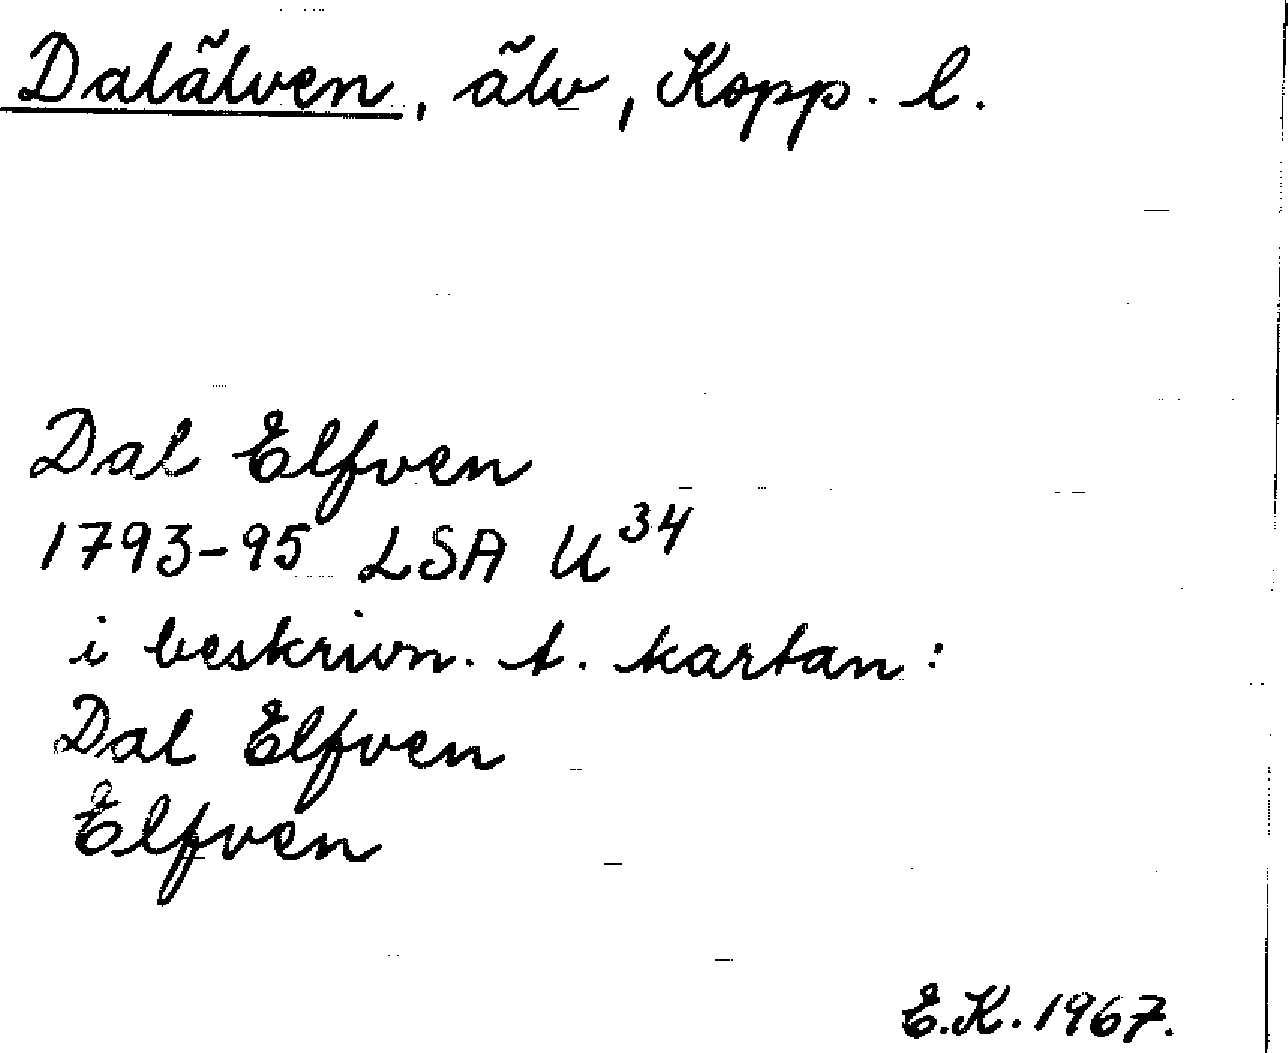 Dalälven, älv, Kopp. l.
Dal Elfven
1793-95 LSA U³⁴
i beskrivn. t. kartan:
Dal Elfven
Elfven
E.K. 1967.